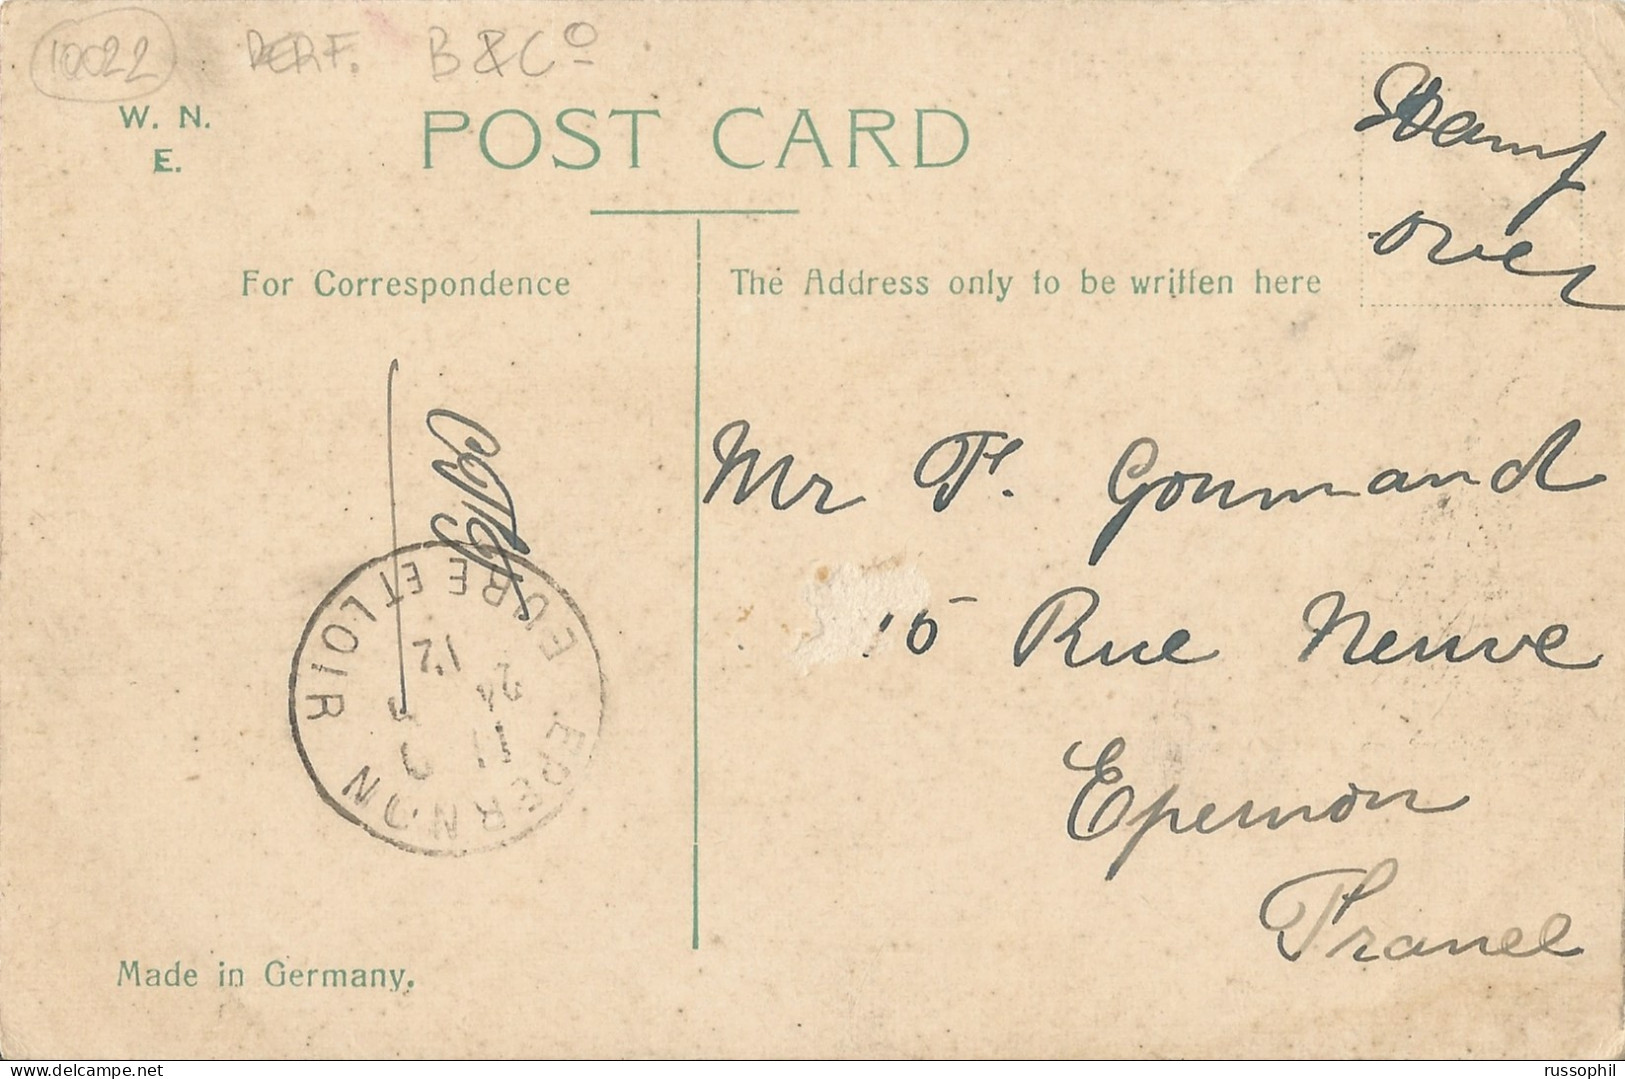 10022 PERF. B & Co
W. N.
E.
POST CARD
Stamp
over
For Correspondence
The Address only to be written here
Mr F. Gourmand
15 Rue Neuve
Epernon
France
EPERNON
EURE ET LOIR
12
24
11
Made in Germany.
russophil
www.delcampe.net